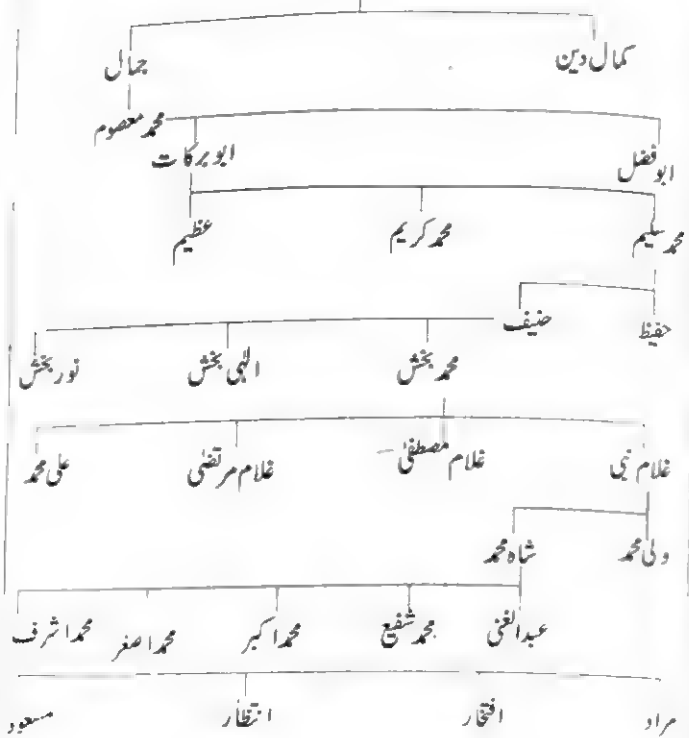 کمال دین جمال
محمد معصوم
ابو فضل ابو برکات
محمد سلیم محمد کریم عظیم
حفیظ حنیف
محمد بخش الہی بخش نور بخش
غلام نبی غلام مصطفیٰ غلام مرتضٰی علی محمد
ولی محمد شاہ محمد
عبدالغنی محمد شفیع محمد اکبر محمد اصغر محمد اشرف
مراد افتخار انتظار مسعود